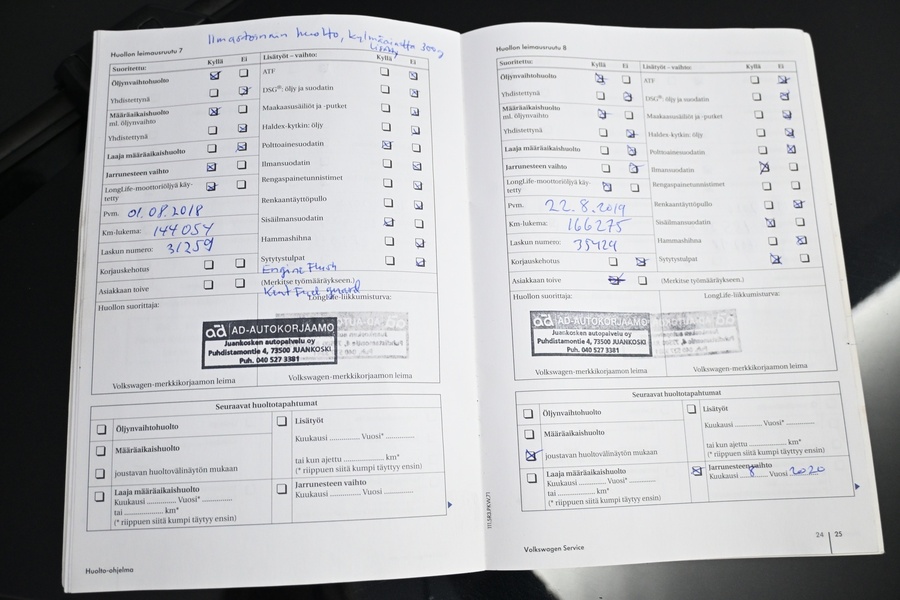 Ilmastoinnin huolto, kylmäainetta 300g
Lisätty
Huollon leimausruutu 7
Suoritettu: Kyllä Ei
Öljynvaihtohuolto
Yhdistettynä
Määräaikaishuolto
ml. öljynvaihto
Yhdistettynä
Laaja määräaikaishuolto
Jarrunesteen vaihto
LongLife-moottoriöljyä käy-
tetty
Pvm. 01.08.2018
Km-lukema: 144054
Laskun numero: 31259
Korjauskehotus
Asiakkaan toive
Lisätyöt – vaihto: Kyllä Ei
ATF
DSG®: öljy ja suodatin
Maakaasusäiliöt ja -putket
Haldex-kytkin: öljy
Polttoainesuodatin
Ilmansuodatin
Rengaspainetunnistimet
Renkaantäyttöpullo
Sisäilmansuodatin
Hammashihna
Sytytystulpat
Engine Flush
(Merkitse työmääräykseen.)
Huollon suorittaja:
LongLife-liikkumisturva:
ad AD-AUTOKORJAAMO
Juankosken autopalvelu oy
Puhdistamontie 4, 73500 JUANKOSKI
Puh. 040 527 3381
Volkswagen-merkkikorjaamon leima
Volkswagen-merkkikorjaamon leima
Seuraavat huoltotapahtumat
Öljynvaihtohuolto
Määräaikaishuolto
joustavan huoltovälinäytön mukaan
Laaja määräaikaishuolto
Kuukausi ............ Vuosi* ..............
tai .................... km*
(* riippuen siitä kumpi täyttyy ensin)
Lisätyöt
Kuukausi ............. Vuosi* .............
tai kun ajettu ................. km*
(* riippuen siitä kumpi täyttyy ensin)
Jarrunesteen vaihto
Kuukausi ............. Vuosi .............
Huolto-ohjelma
111.5R3.PKW.71
Huollon leimausruutu 8
Suoritettu: Kyllä Ei
Öljynvaihtohuolto
Yhdistettynä
Määräaikaishuolto
ml. öljynvaihto
Yhdistettynä
Laaja määräaikaishuolto
Jarrunesteen vaihto
LongLife-moottoriöljyä käy-
tetty
Pvm. 22.8.2019
Km-lukema: 166275
Laskun numero: 35424
Korjauskehotus
Asiakkaan toive
Lisätyöt – vaihto: Kyllä Ei
ATF
DSG®: öljy ja suodatin
Maakaasusäiliöt ja -putket
Haldex-kytkin: öljy
Polttoainesuodatin
Ilmansuodatin
Rengaspainetunnistimet
Renkaantäyttöpullo
Sisäilmansuodatin
Hammashihna
Sytytystulpat
(Merkitse työmääräykseen.)
Huollon suorittaja:
LongLife-liikkumisturva:
ad AD-AUTOKORJAAMO
Juankosken autopalvelu oy
Puhdistamontie 4, 73500 JUANKOSKI
Puh. 040 527 3381
Volkswagen-merkkikorjaamon leima
Volkswagen-merkkikorjaamon leima
Seuraavat huoltotapahtumat
Öljynvaihtohuolto
Määräaikaishuolto
joustavan huoltovälinäytön mukaan
Laaja määräaikaishuolto
Kuukausi ............ Vuosi* ..............
tai .................... km*
(* riippuen siitä kumpi täyttyy ensin)
Lisätyöt
Kuukausi ............. Vuosi* .............
tai kun ajettu ................. km*
(* riippuen siitä kumpi täyttyy ensin)
Jarrunesteen vaihto
Kuukausi 8 Vuosi 2020
Volkswagen Service
24 | 25